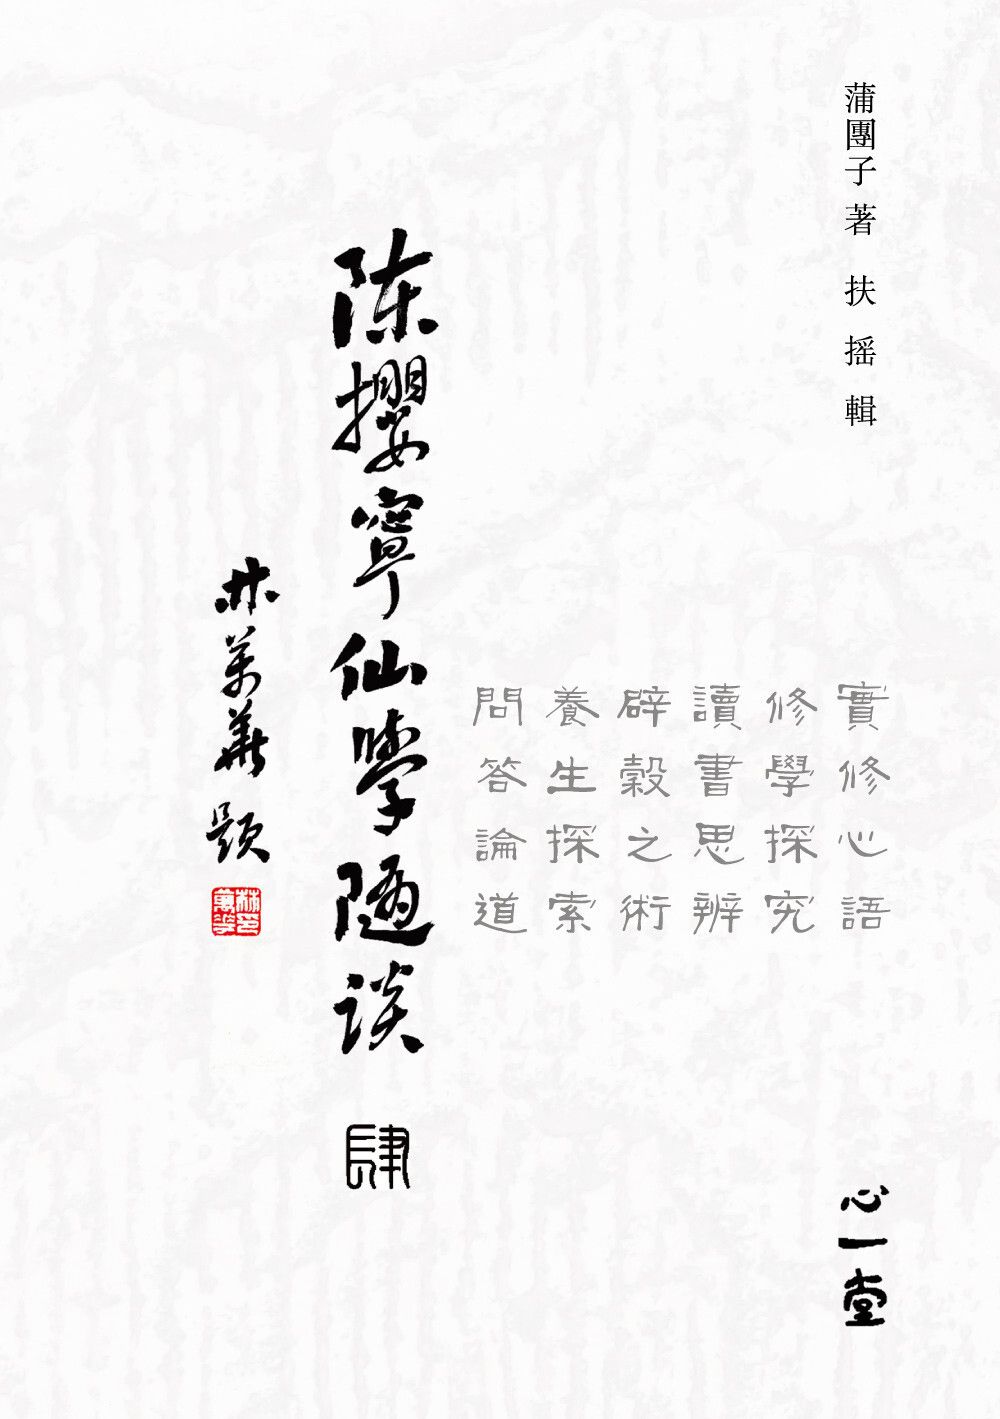 蒲團子著 扶搖輯
實修心語
修學探究
讀書思辨
辟穀之術
養生探索
問答論道
陈撄寧仙學随谈 肆
林萬華題
林萬華印
心一堂